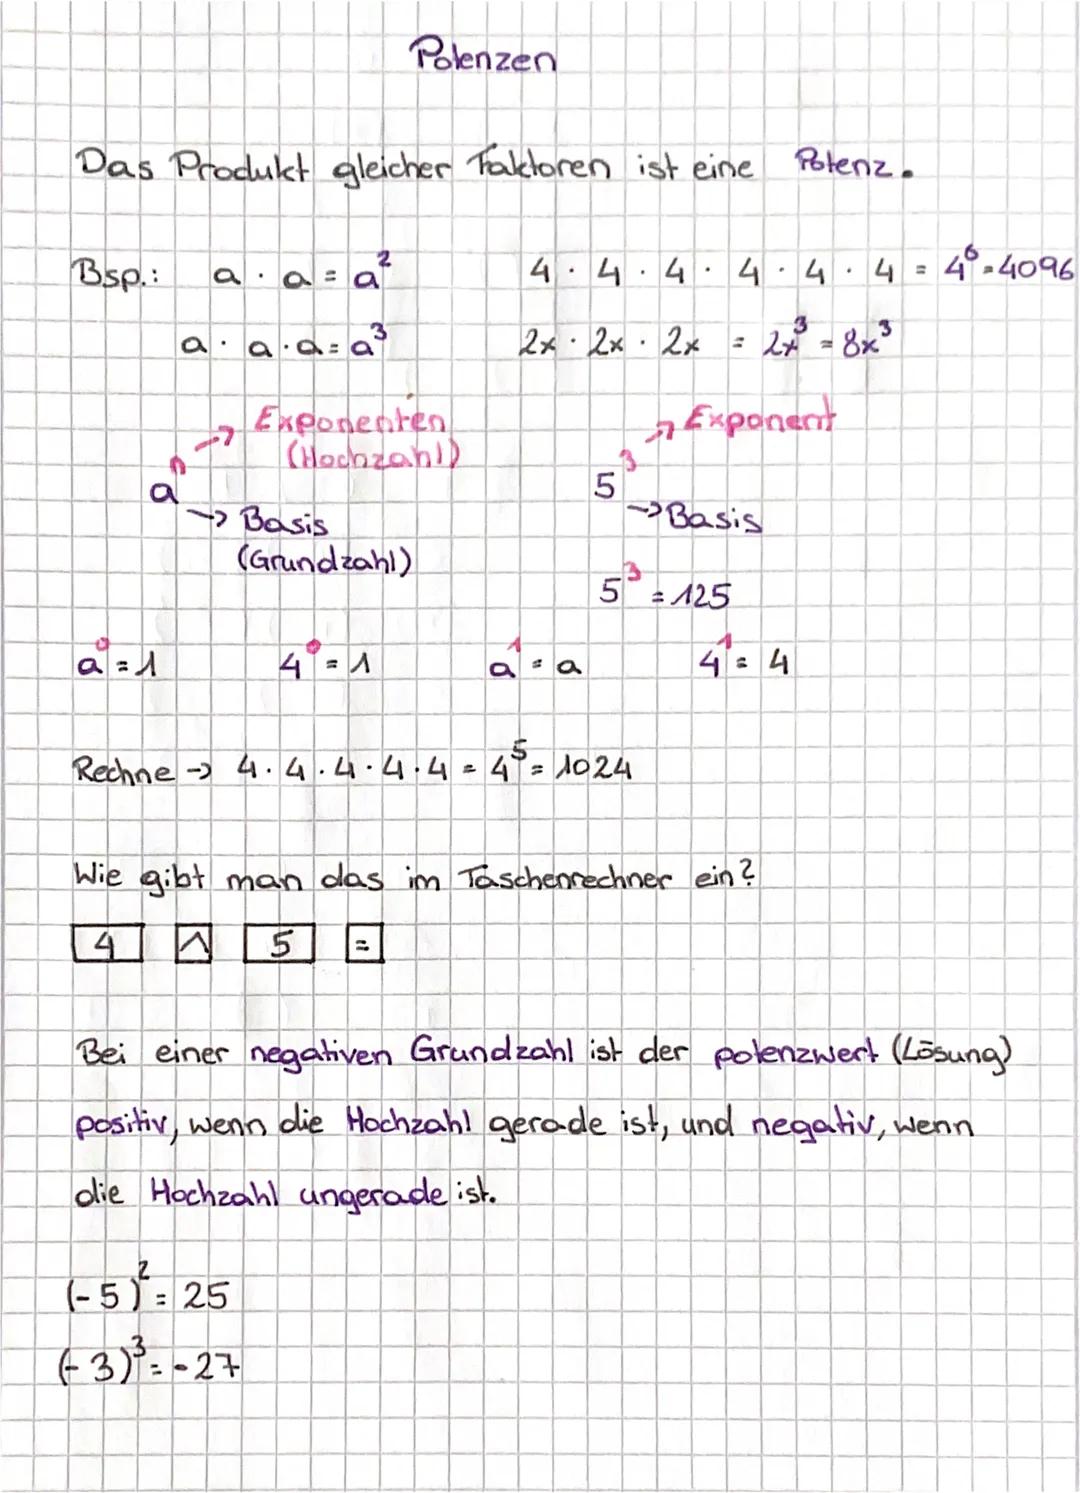 Potenzen
Das Produkt gleicher Faktoren ist eine Potenz.
Bsp.: a · a = a² 4 · 4 · 4 · 4 · 4 · 4 = 4⁶ = 4096
a · a · a = a³ 2x · 2x · 2x = 2x³ = 8x³
aⁿ → Exponenten (Hochzahl)
→ Basis (Grundzahl)
5³ → Exponent
→ Basis
5³ = 125
a⁰ = 1 4⁰ = 1 a¹ = a 4¹ = 4
Rechne → 4 · 4 · 4 · 4 · 4 = 4⁵ = 1024
Wie gibt man das im Taschenrechner ein?
4 ^ 5 =
Bei einer negativen Grundzahl ist der potenzwert (Lösung)
positiv, wenn die Hochzahl gerade ist, und negativ, wenn
die Hochzahl ungerade ist.
(-5)² = 25
(-3)³ = -27